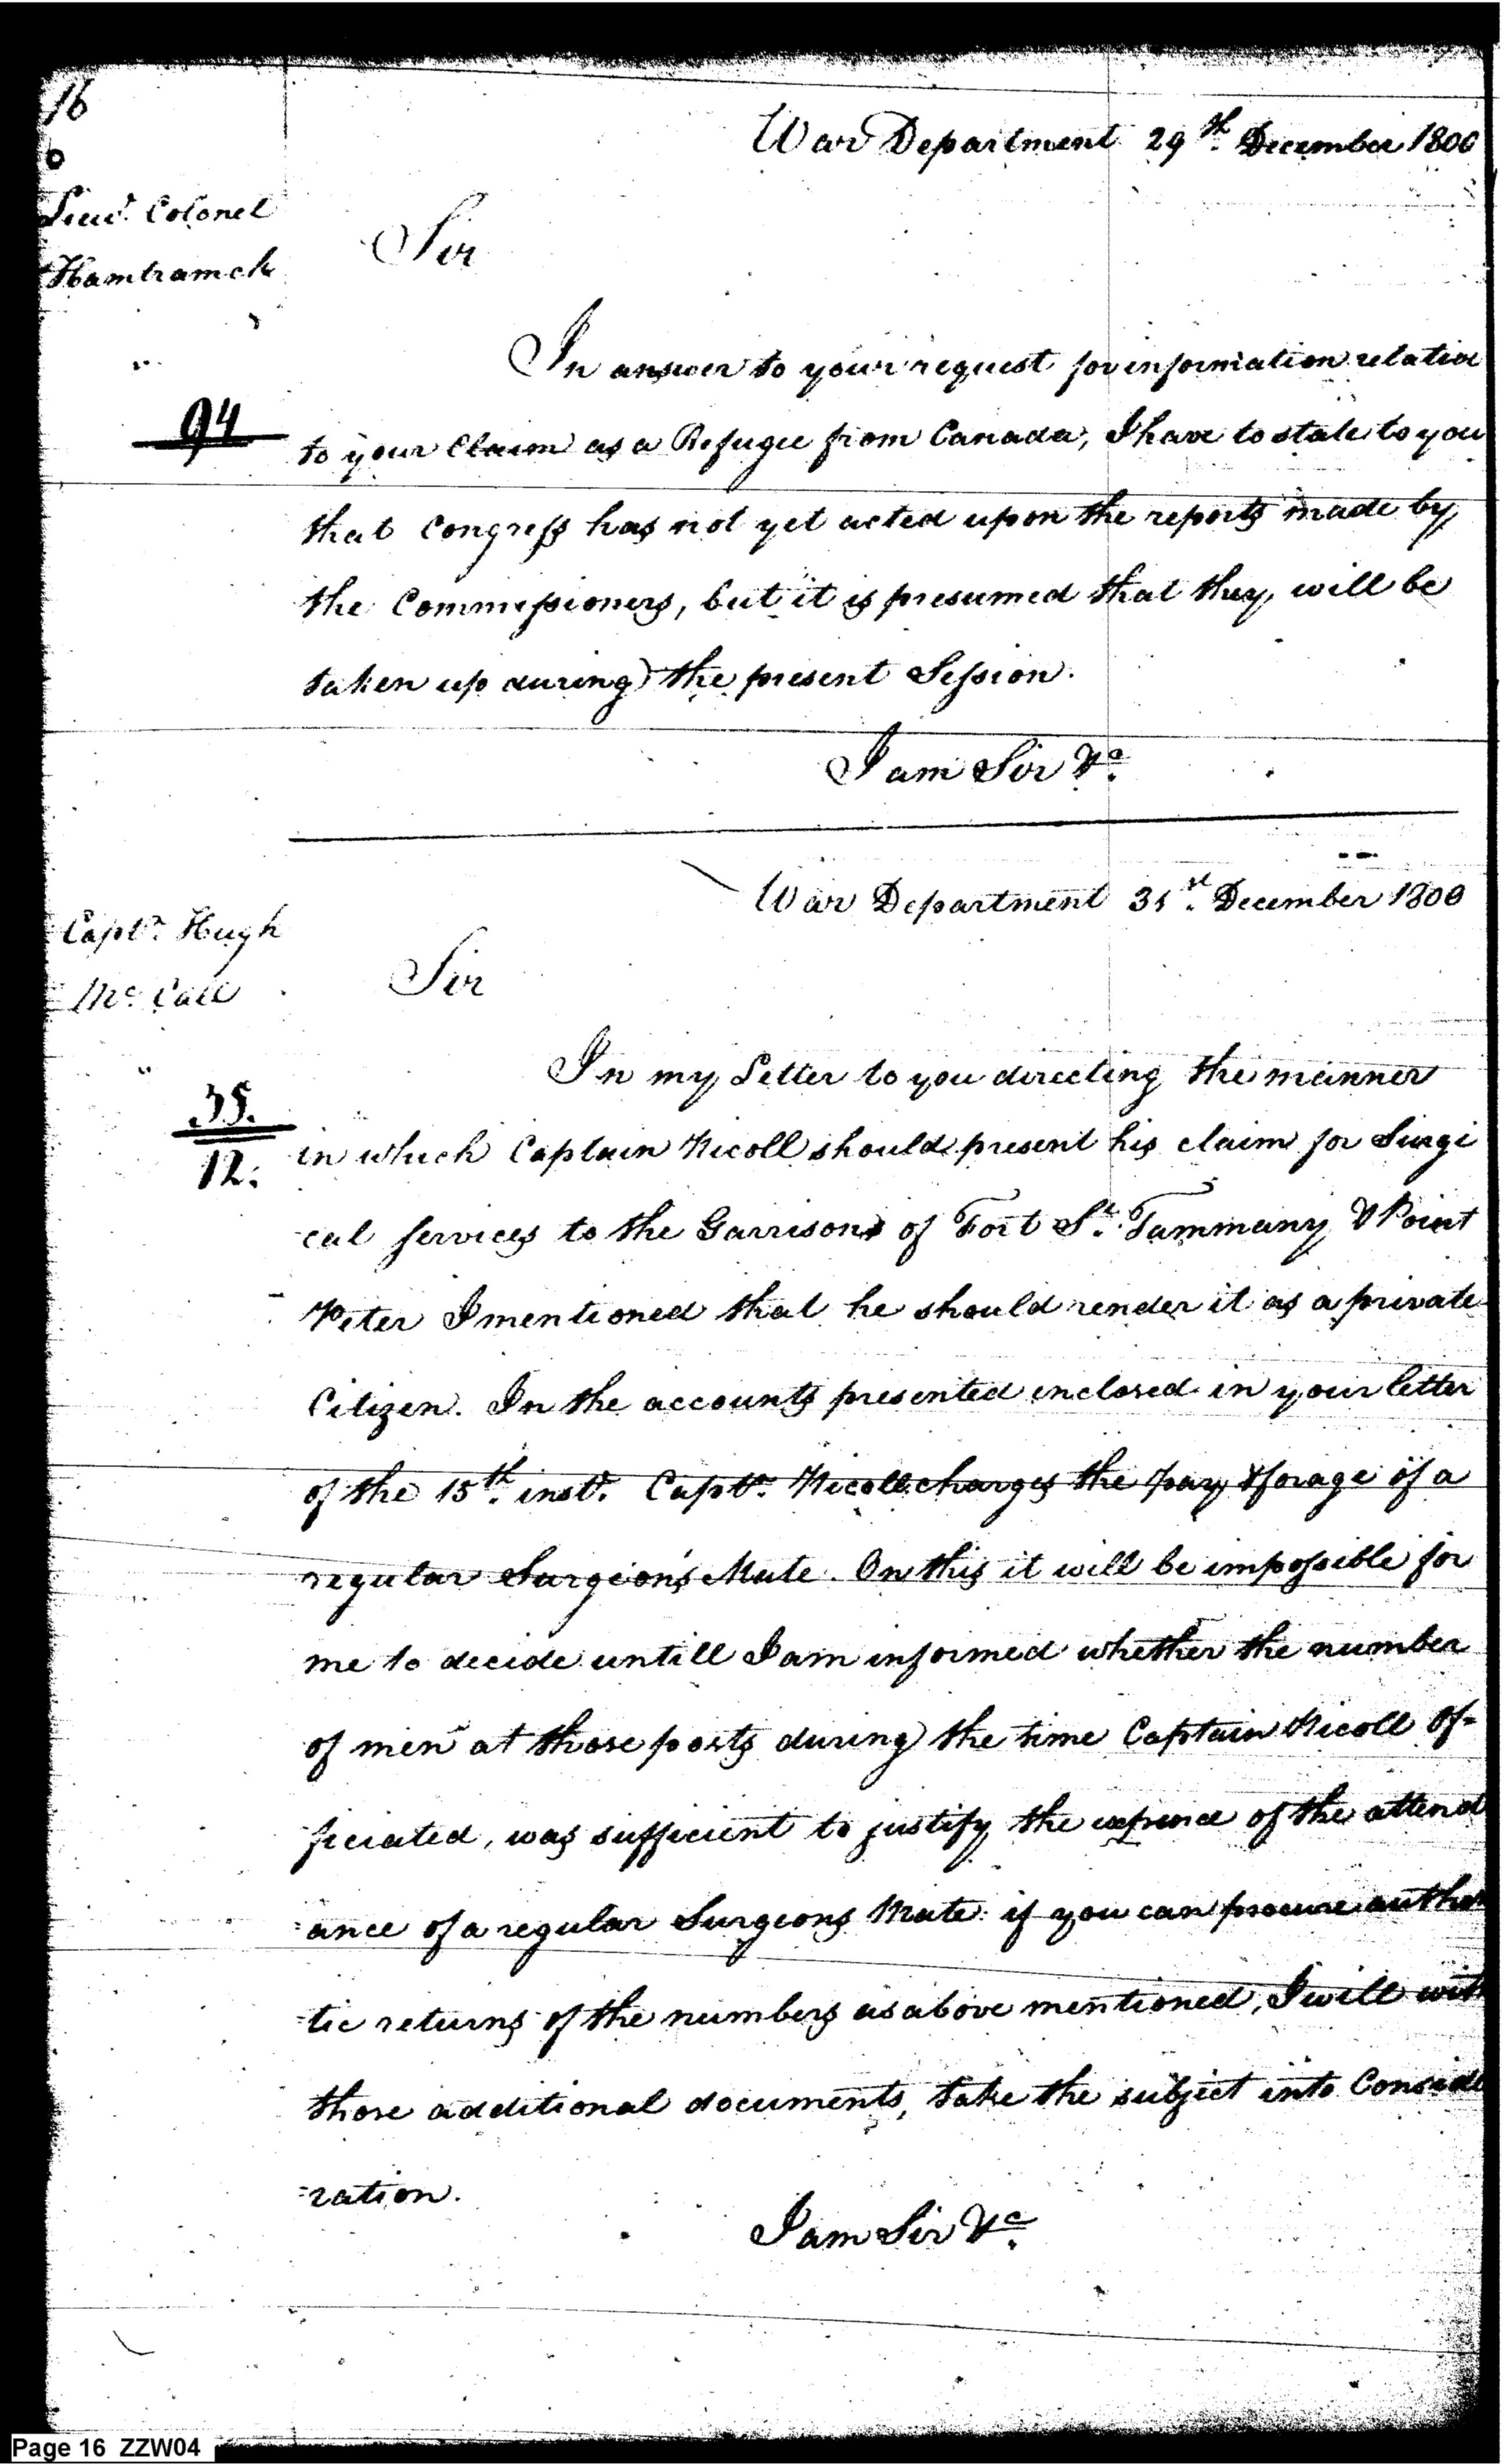 16
War Department 29th December 1800
Lieut. Colonel
Hamtramck
Sir
In answer to your request for information relative
94
to your Claim as a Refugee from Canada, I have to state to you
that Congress has not yet acted upon the reports made by
the Commissioners, but it is presumed that they will be
taken up during the present Session.
I am Sir &c.
War Department 31st December 1800
Capt. Hugh
Mc Call
Sir
In my Letter to you directing the manner
35.
12.
in which Captain Nicoll should present his claim for Surgi
cal services to the Garrisons of Fort St. Tammany & Point
Peter I mentioned that he should render it as a private
Citizen. In the accounts presented enclosed in your letter
of the 15th. inst. Capt. Nicoll charges the pay & forage of a
regular Surgeon's Mate. On this it will be impossible for
me to decide untill I am informed whether the number
of men at those posts during the time Captain Nicoll of=
ficiated, was sufficient to justify the expence of the attend
ance of a regular Surgeons Mate: if you can procure authen
tic returns of the numbers as above mentioned, I will with
those additional documents, take the subject into Conside
=ration.
I am Sir &c.
Page 16 ZZW04